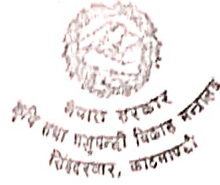 नेपाल सरकार
कृषि तथा पशुपन्छी विकास मन्त्रालय
सिंहदरबार, काठमाण्डौ